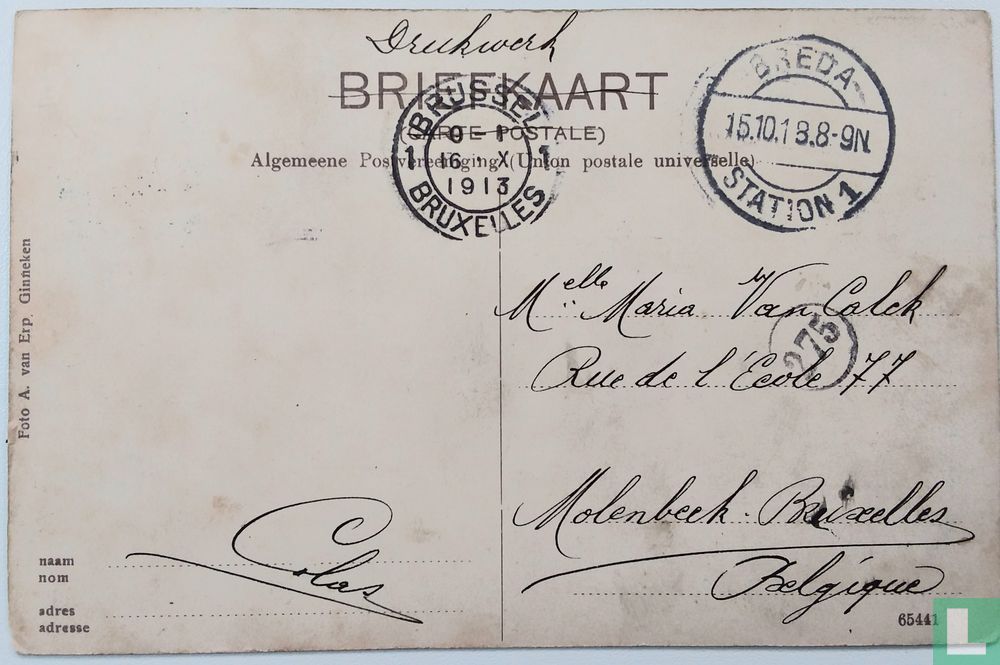 Drukwerk
BRIEFKAART
(CARTE POSTALE)
Algemeene Postvereeniging (Union postale universelle)
BRUSSEL
1 1
16 X
1913
BRUXELLES
BREDA
15.10.13.8-9N
STATION 1
Foto A. van Erp, Ginneken
Melle Maria Van Calck
275
Rue de l'École 77
Molenbeek-Bruxelles
Belgique
Colas
naam
nom
adres
adresse
65441
L